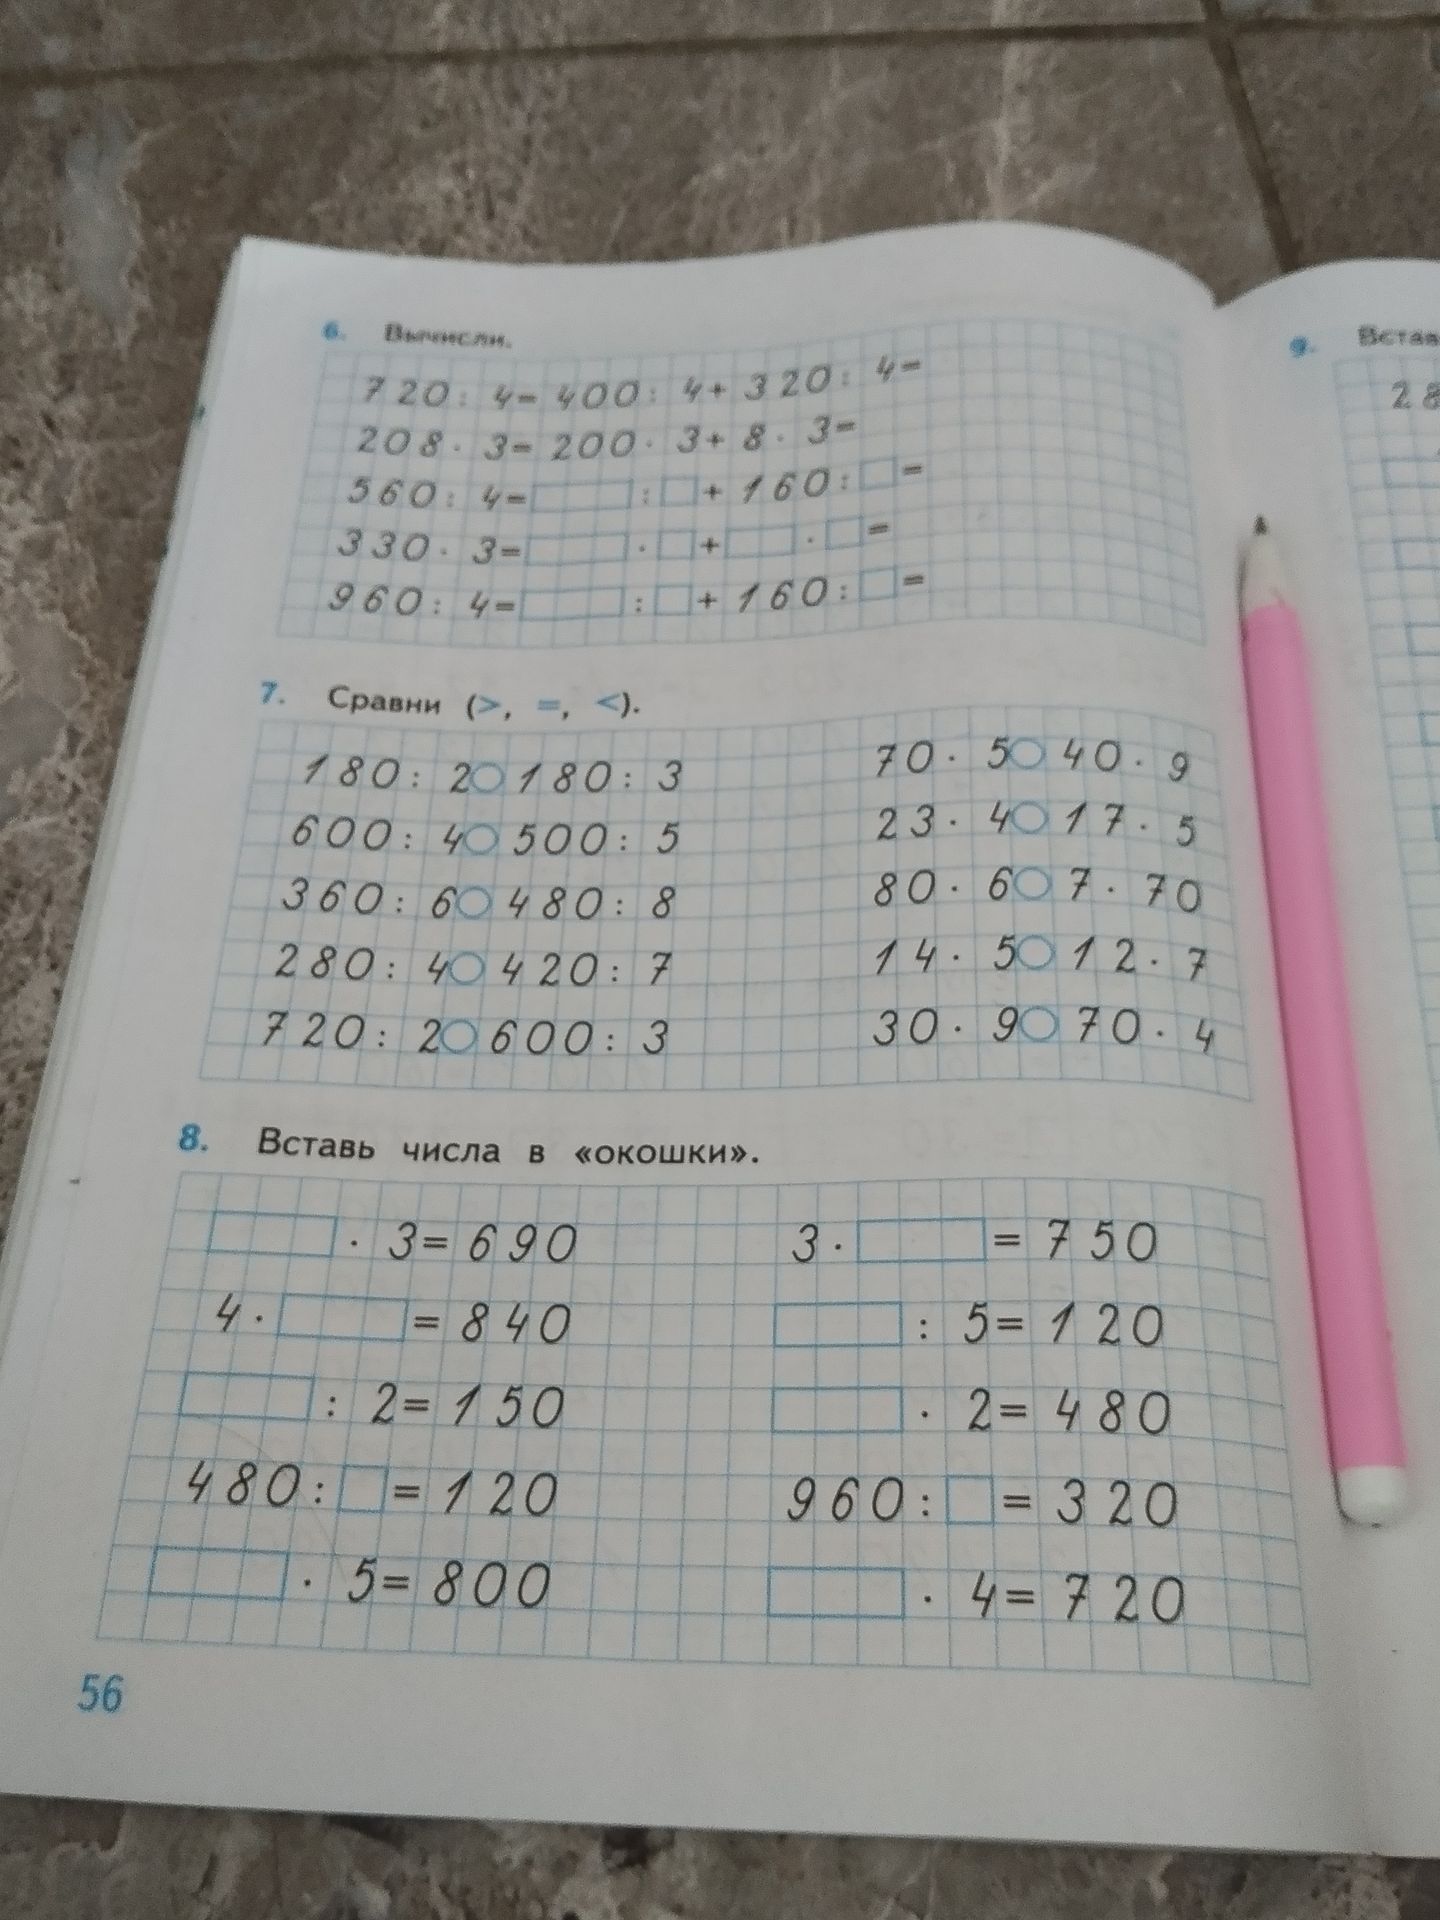 6. Вычисли.
720 : 4 = 400 : 4 + 320 : 4 =
208 · 3 = 200 · 3 + 8 · 3 =
560 : 4 = : + 160 : =
330 · 3 = · + · =
960 : 4 = : + 160 : =
7. Сравни (>, =, <).
180 : 2 180 : 3
600 : 4 500 : 5
360 : 6 480 : 8
280 : 4 420 : 7
720 : 2 600 : 3
70 · 5 40 · 9
23 · 4 17 · 5
80 · 6 7 · 70
14 · 5 12 · 7
30 · 9 70 · 4
8. Вставь числа в «окошки».
· 3 = 690
4 · = 840
: 2 = 150
480 : = 120
· 5 = 800
3 · = 750
: 5 = 120
· 2 = 480
960 : = 320
· 4 = 720
56
9. Встав
28